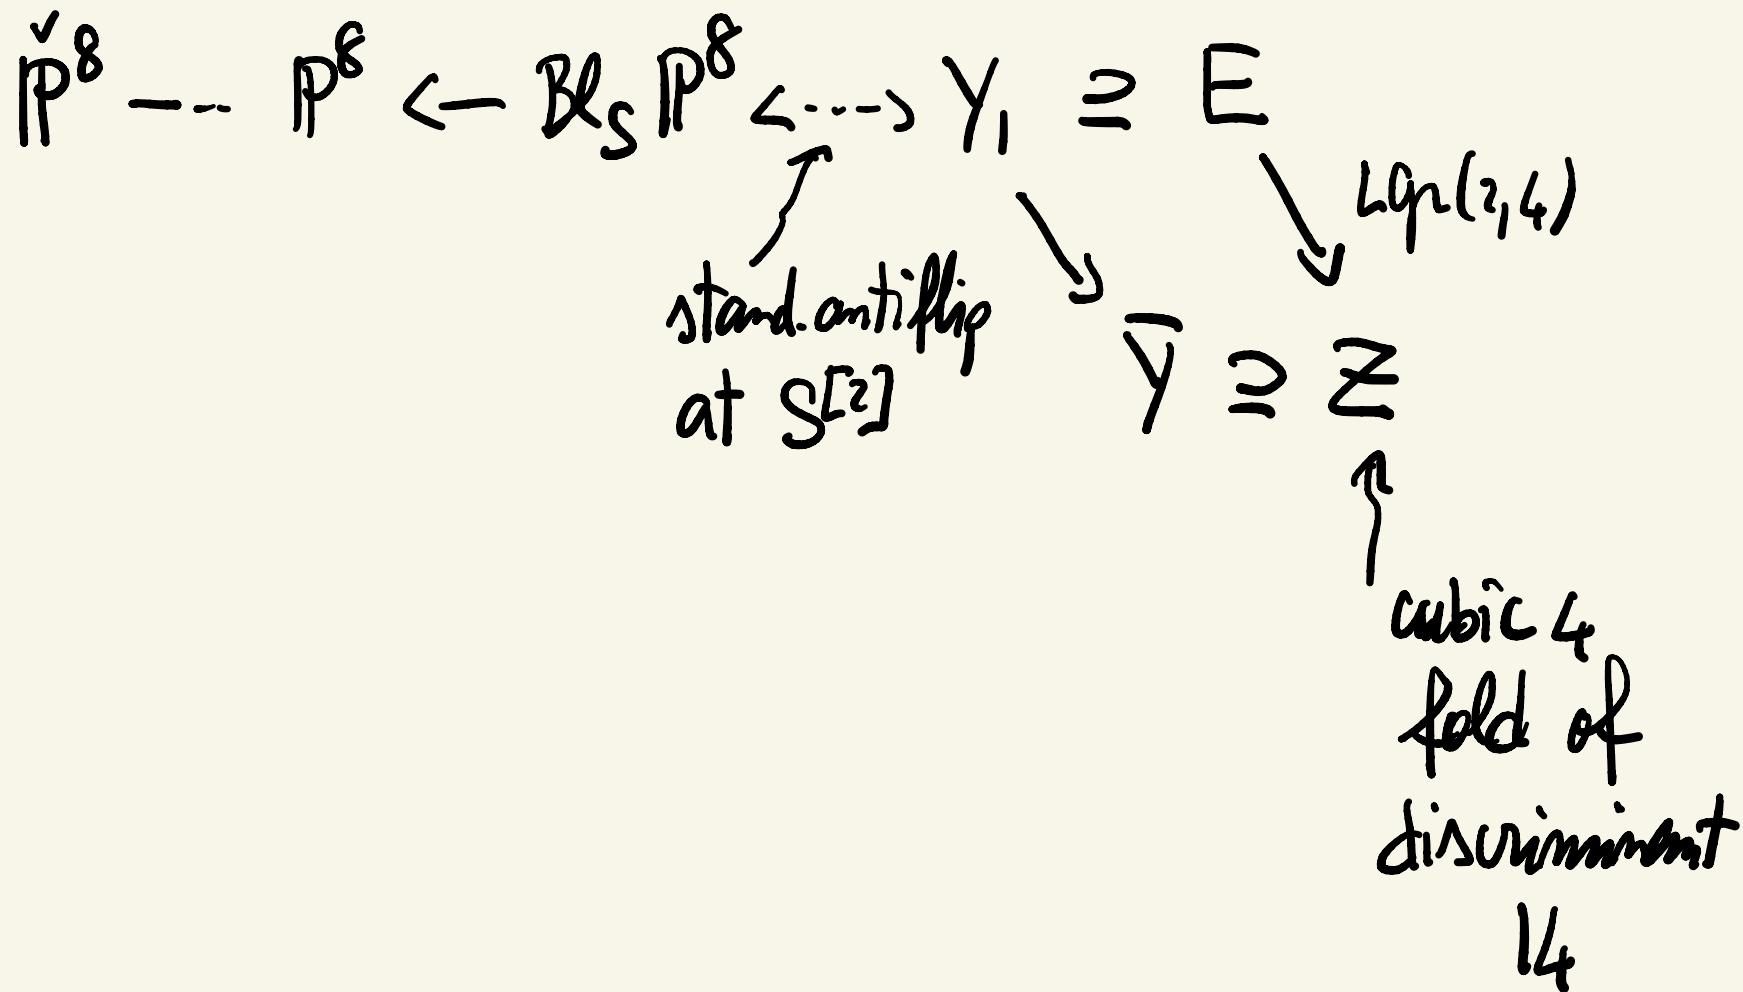 P̌⁸ --- P⁸ ← Bl_S P⁸ <---> Y₁ ⊇ E
LGr(2,4)
stand. antiflip
at S^[2]
Ȳ ⊇ Z
cubic 4
fold of
discriminant
14